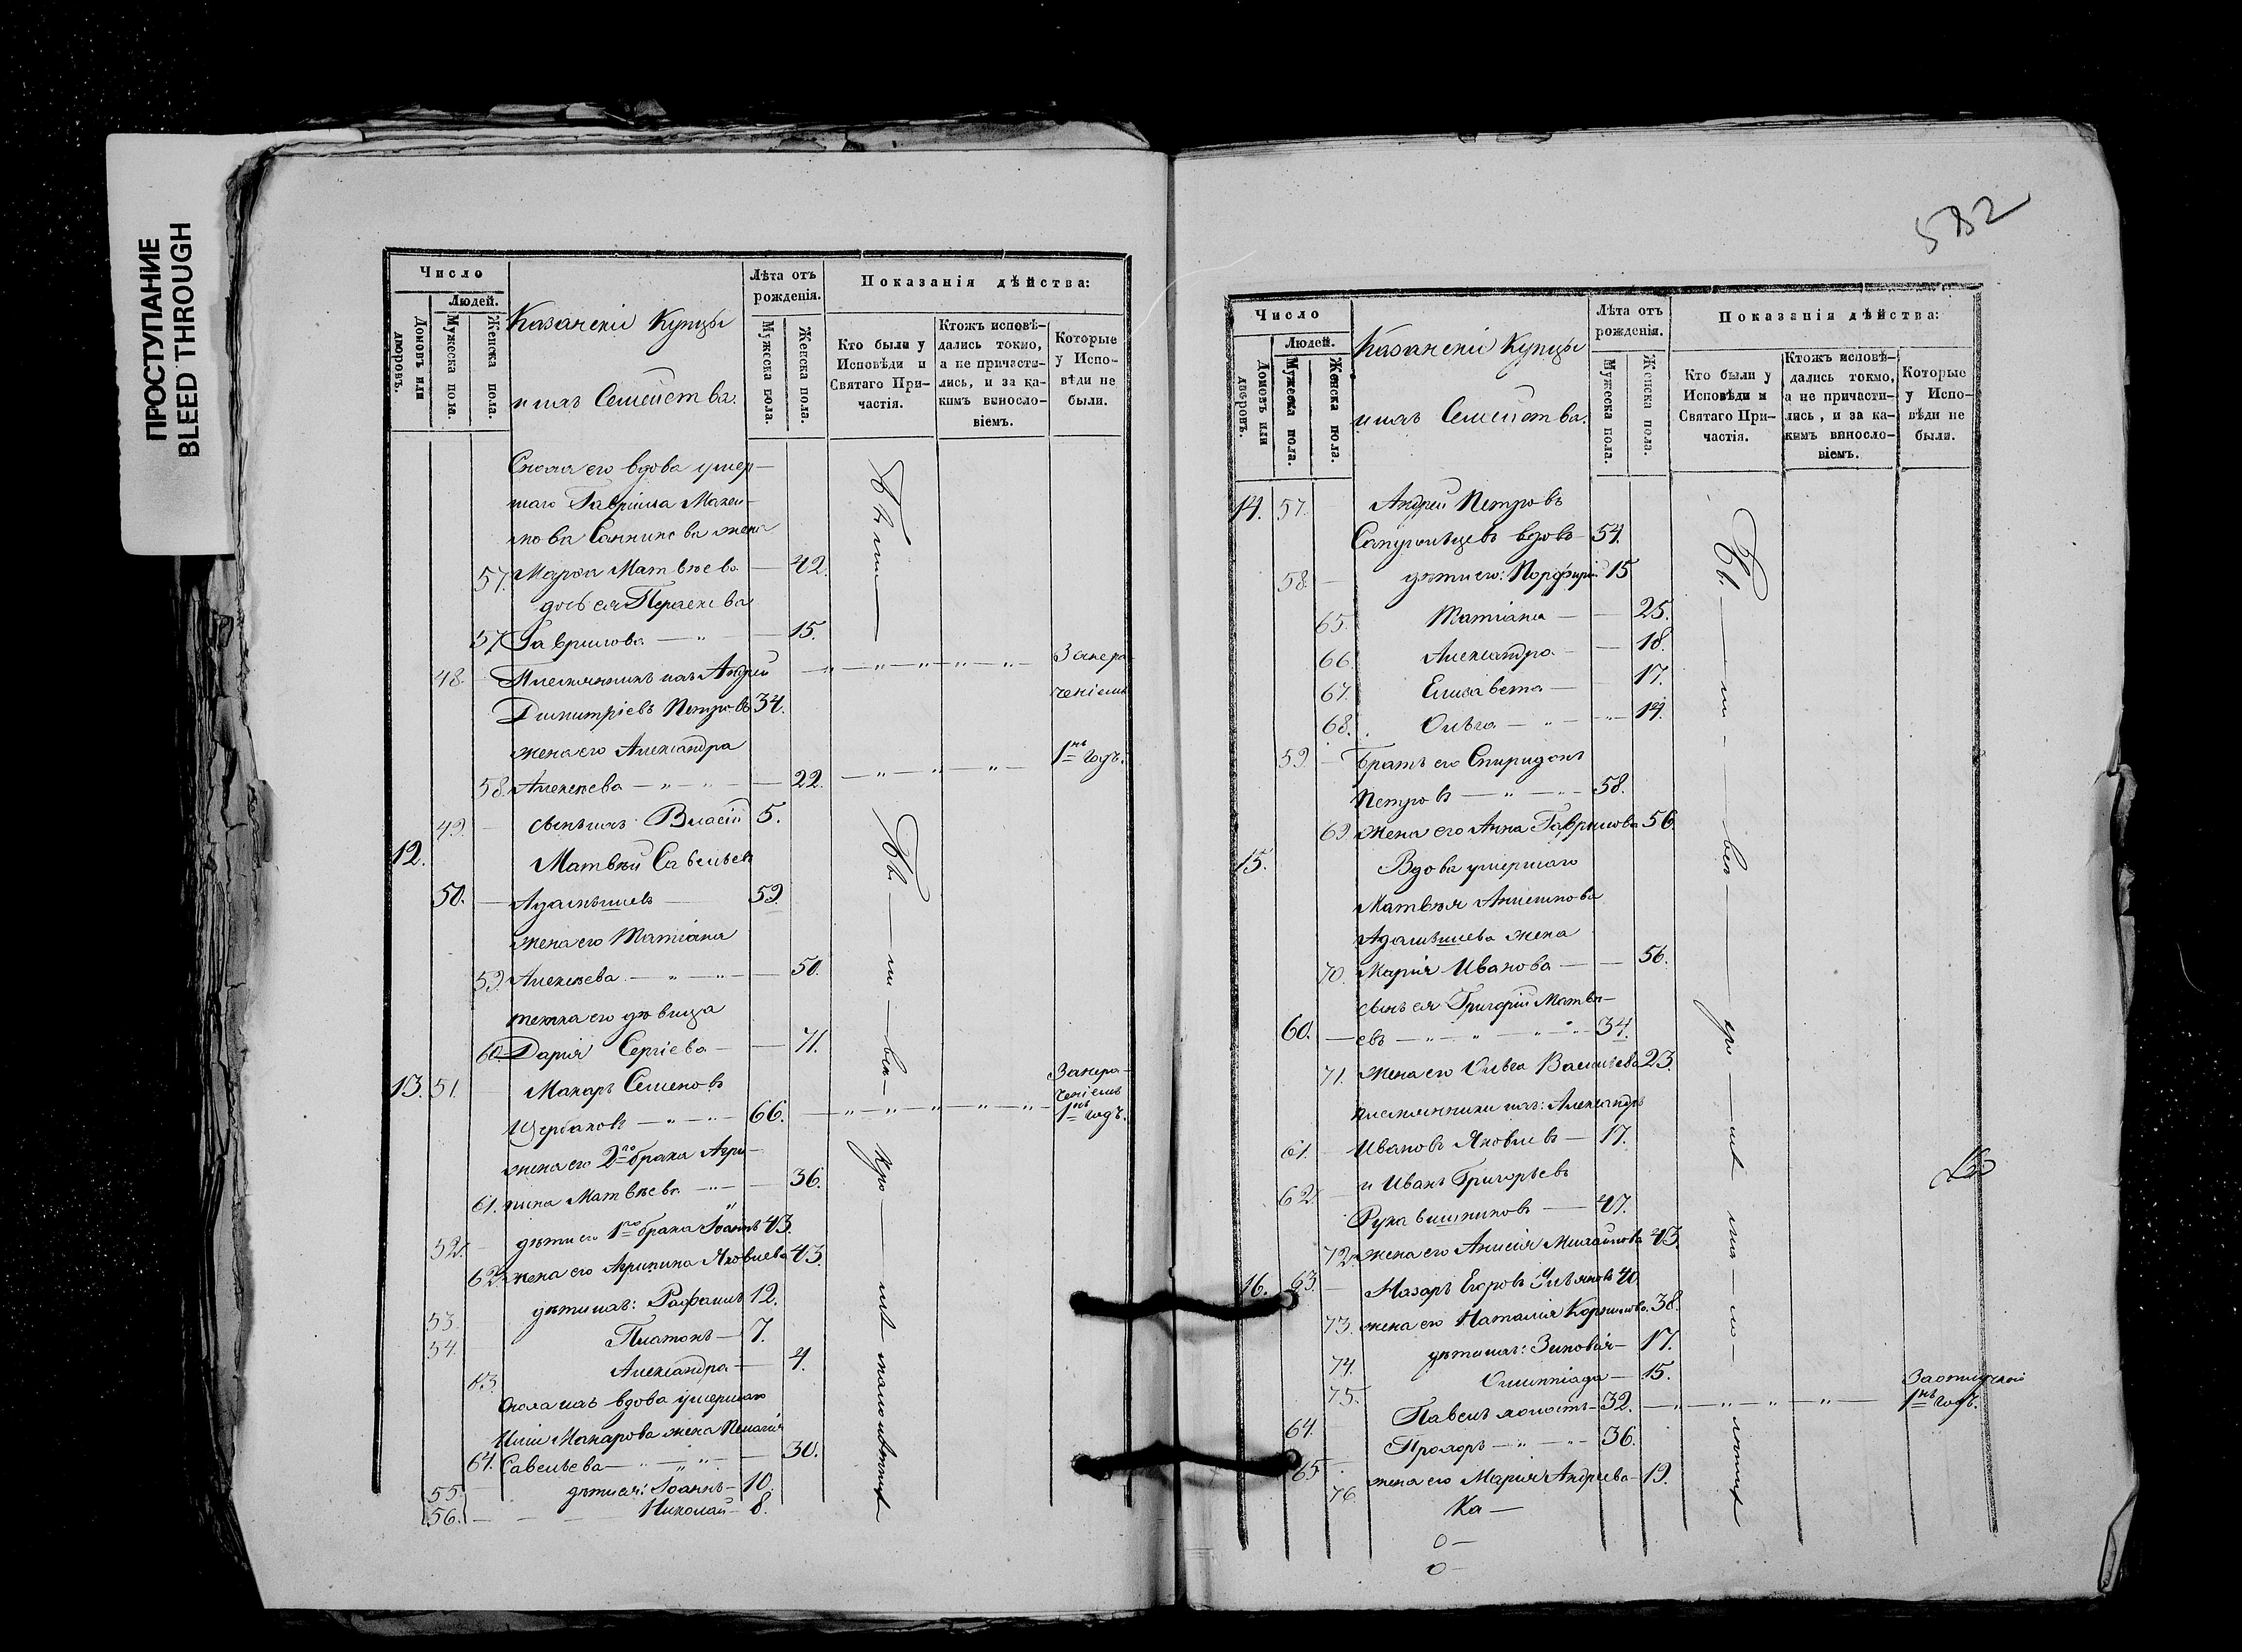 ПРОСТУПАНИЕ
BLEED THROUGH
Число
Людей.
Домовъ или дворовъ.
Мужеска пола.
Женска пола.
Казанскіи Купцы
и ихъ Семейства.
Лѣта отъ рожденія.
Мужеска пола.
Женска пола.
Показанія дѣйства:
Кто были у Исповѣди и Святаго Причастія.
Ктожъ исповѣдались токмо, а не причастились, и за какимъ винословіемъ.
Которые у Исповѣди не были.
Сноха его вдова умер-
шаго Гавріила Макси-
мова жена
57. Марѳа Матвѣева — 42.
дочь ея
57 Гаврилова — " — 15.
48. Племянникъ ихъ Андрей
Димитріевъ Петровъ 34.
жена его Александра
58. Алексѣева — " — 22.
49. сынъ ихъ Власій 5.
12. Матвѣй Савельевъ
50. — 59.
жена его Татіана
59. Алексѣева — " — " — 50.
тетка его дѣвица
60. Дарія Сергіева — 71.
13. 51. Макаръ Семеновъ
Щербаковъ — " — " — 66.
жена его 2го брака Агри-
61. пина Матвѣева — " — 36.
52. дѣти его 1го брака Іоаннъ 43.
62. жена его Агрипина Яковлева 43.
53. дѣти ихъ: Рафаилъ 12.
54. Платонъ — 7.
63. Александра — 4.
Сноха ихъ вдова умершаго
Макарова жена Пелагія
64. Савельева — " — " — 30.
55. дѣти ея: Іоаннъ — 10.
56. — Николай — 8.
Бы — ли — вси —
1нъ годъ.
1нъ годъ.
582
Число
Людей.
Домовъ или дворовъ.
Мужеска пола.
Женска пола.
Казанскіи Купцы
и ихъ Семейства.
Лѣта отъ рожденія.
Мужеска пола.
Женска пола.
Показанія дѣйства:
Кто были у Исповѣди и Святаго Причастія.
Ктожъ исповѣдались токмо, а не причастились, и за какимъ винословіемъ.
Которые у Исповѣди не были.
14. 57. Андрей Петровъ
вдовъ — 54.
58. — дѣти его: Порфирій 15
65. Татіана — 25.
66. Александра — 18.
67. Елисавета — 17.
68. Ольга — " — 14.
59. — Братъ его Спиридонъ
Петровъ — " — 58.
69. жена его Анна Гаврилова 56.
15. Вдова умершаго
Матвѣя
жена
70. Марія Иванова — 56.
сынъ ея Григорій Матвѣ-
60. — евъ — " — " — 34.
71. жена его Ольга Васильева 23.
племянники ихъ: Александръ
61. Ивановъ Яковлевъ — 17.
62. и Иванъ Григорьевъ
Рукавишниковъ — 47.
72. жена его Анисія Михайлова 43.
16. 63. — Назаръ Егоровъ 40
73. жена его Наталія Корнилова 38.
74. дѣти ихъ: Зиновія — 17.
75. Олимпіада — 15.
64. Павелъ холостъ — 32. — " — " — 1нъ годъ.
65 Прохоръ — " — 36.
76. жена его Марія Андреева — 19.
Ка —
о —
о —